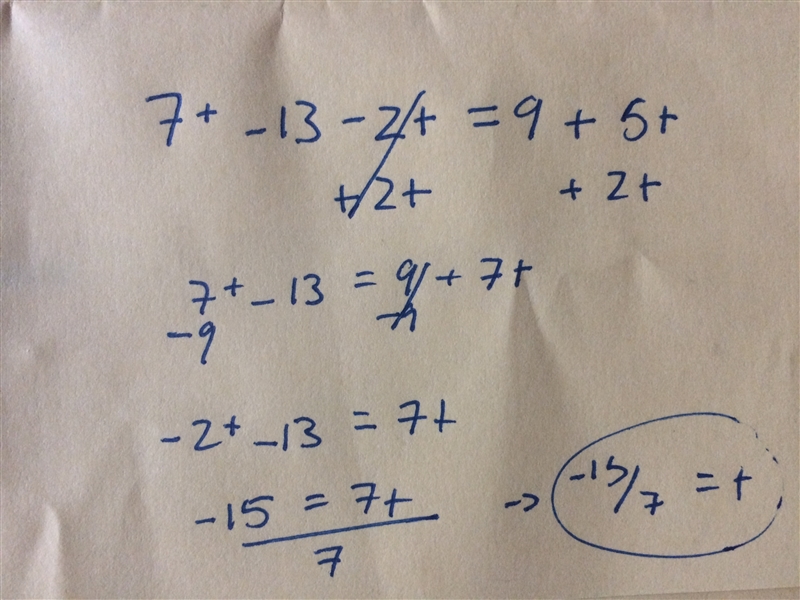 7t - 13 - 2t = 9 + 5t
+ 2t + 2t
7t - 13 = 9 + 7t
- 9 - 9
- 2t - 13 = 7t
- 15 = 7t → -15/7 = t
7